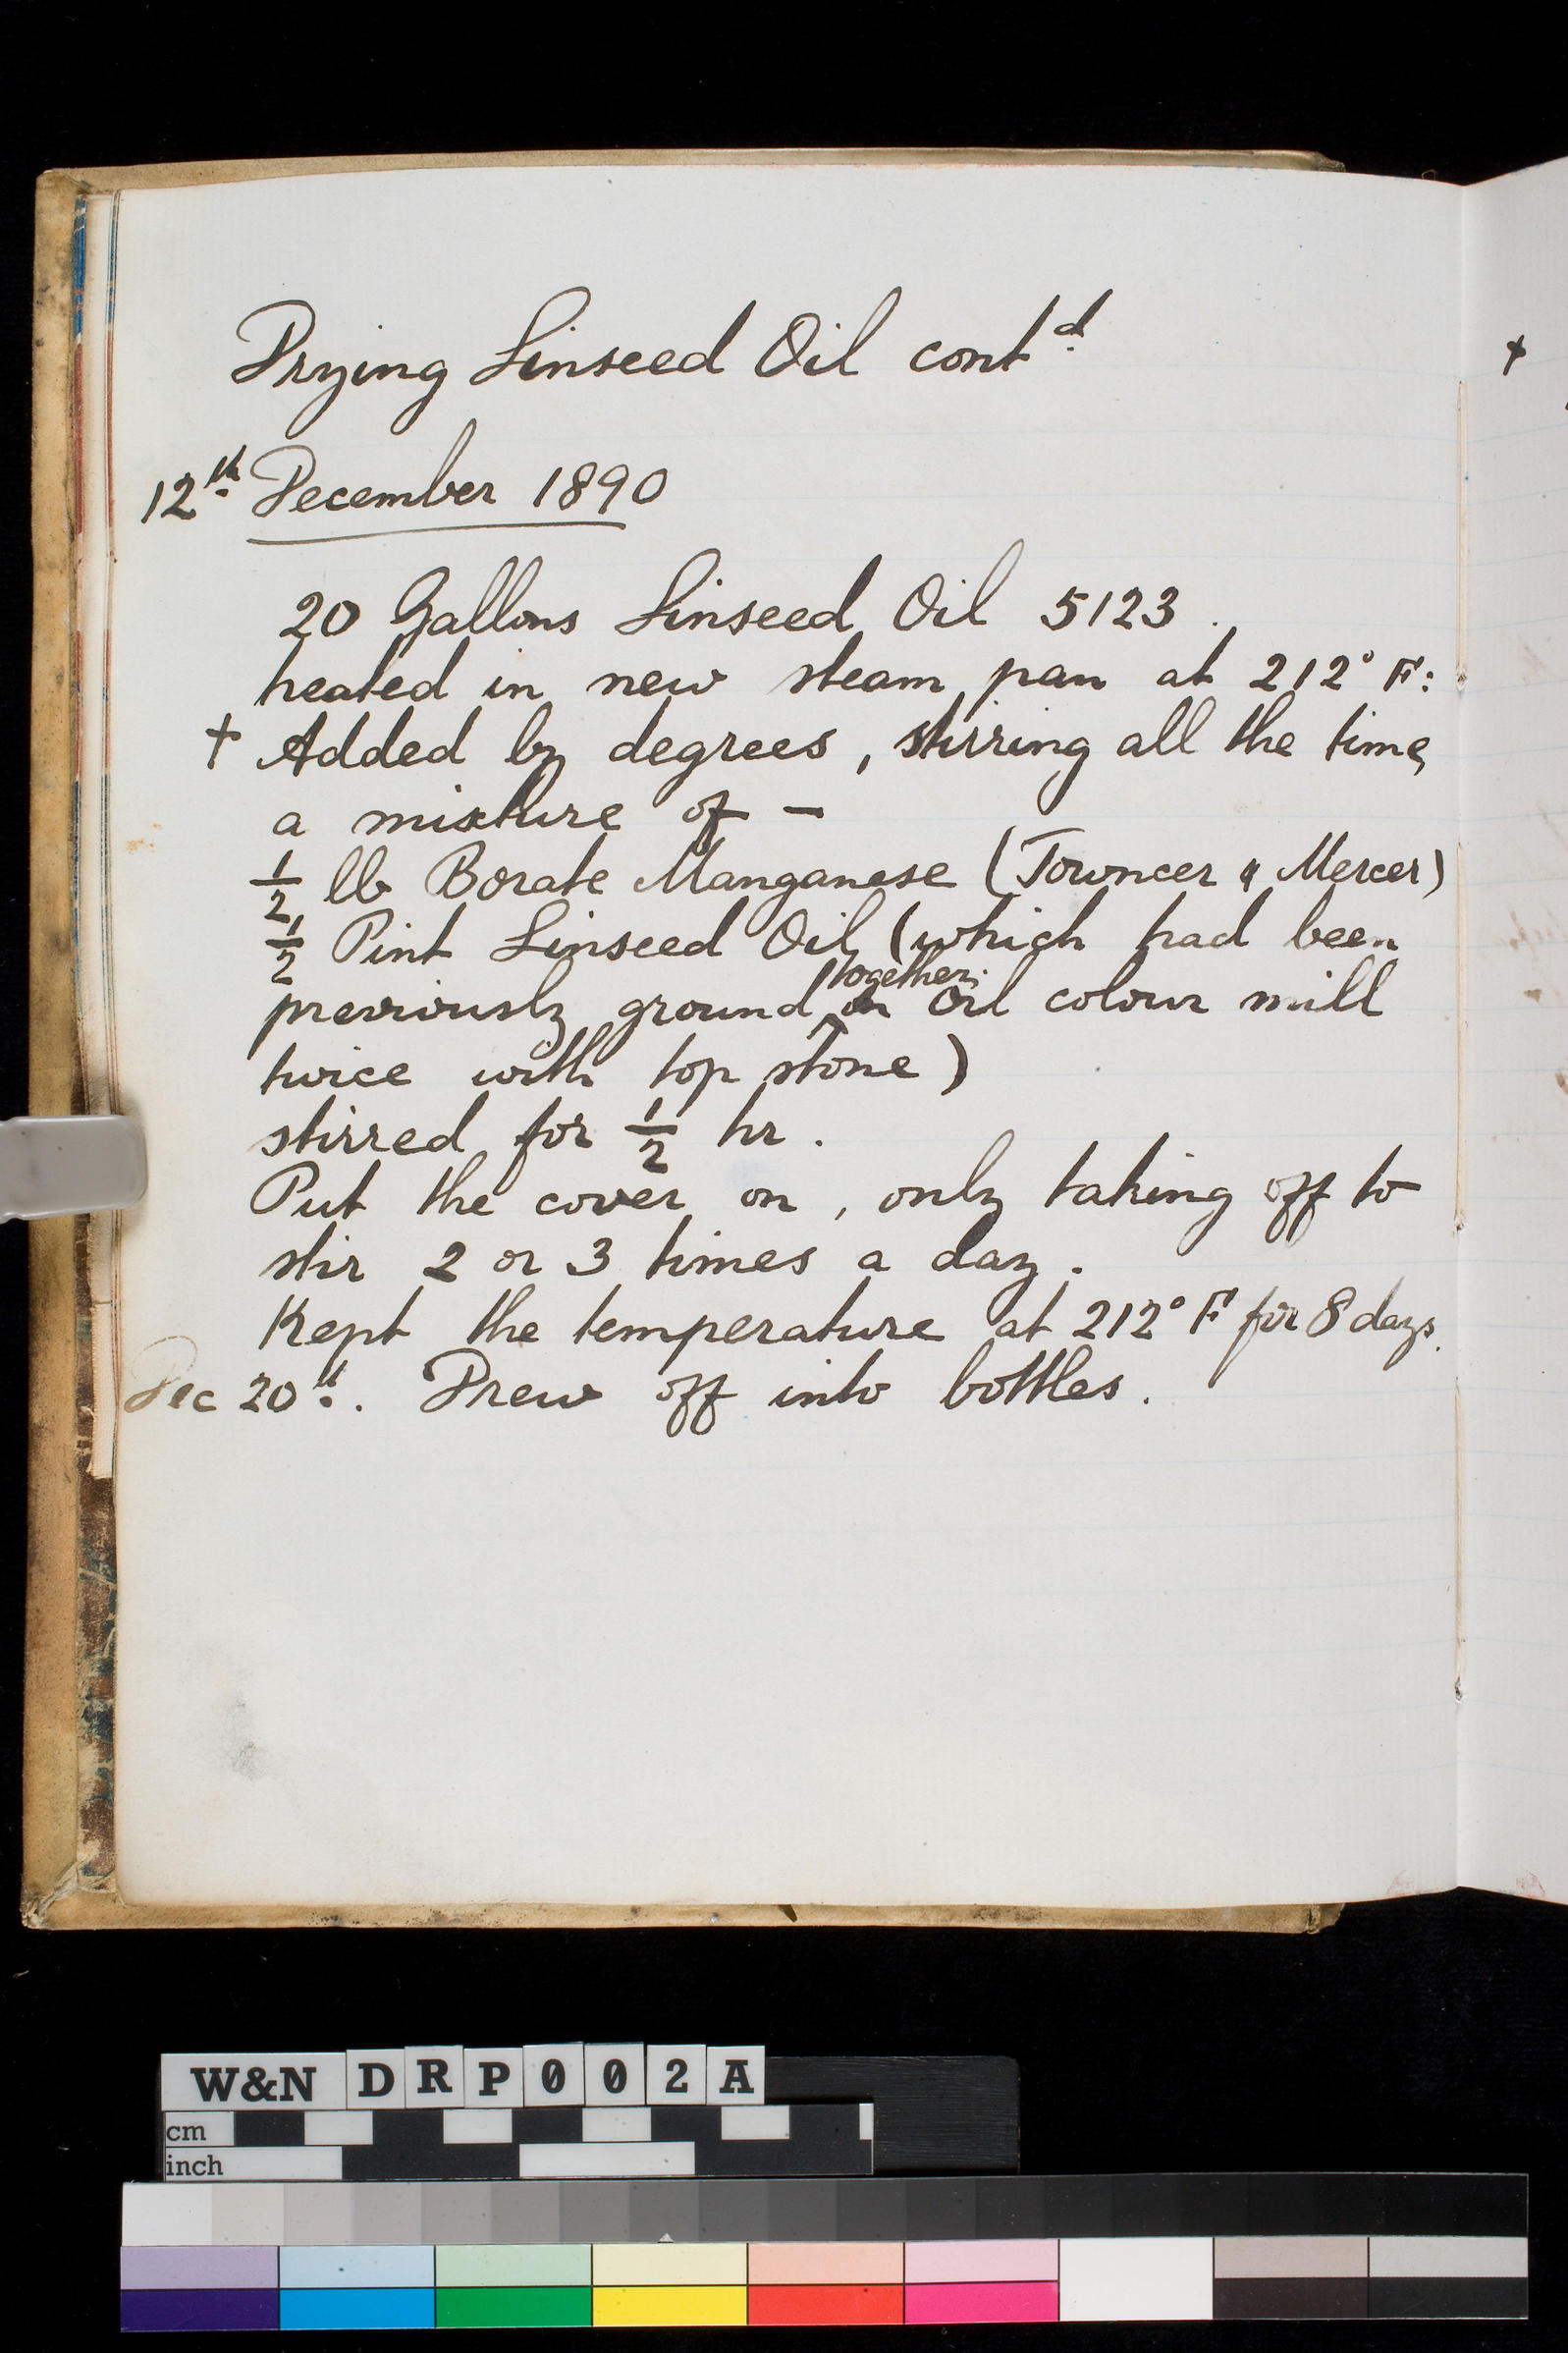 Drying Linseed Oil contd.
12th. December 1890
20 Gallons Linseed Oil 5123.
heated in new steam pan at 212° F:
+ Added by degrees, stirring all the time,
a mixture of -
1/2 lb Borate Manganese (Towncer & Mercer)
1/2 Pint Linseed Oil (which had been
together
previously ground in Oil colour mill
twice with top stone)
stirred for 1/2 hr.
Put the cover on, only taking off to
stir 2 or 3 times a day.
Kept the temperature at 212° F for 8 days.
Dec 20th. Drew off into bottles.
+
W&N DRP002A
cm
inch